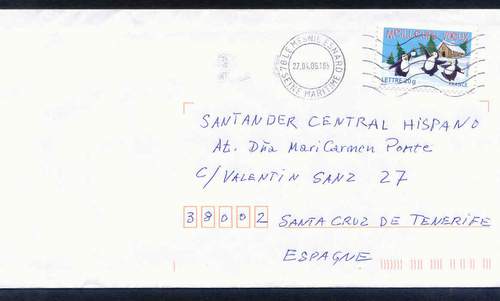 MEILLEURS VŒUX
76 LE MESNIL ESNARD
27.04.06.18H
SEINE MARITIME
LETTRE 20g FRANCE
SANTANDER CENTRAL HISPANO
At. Dña MariCarmen Ponte
C/ VALENTIN SANZ 27
38002 SANTA CRUZ DE TENERIFE
ESPAGNE